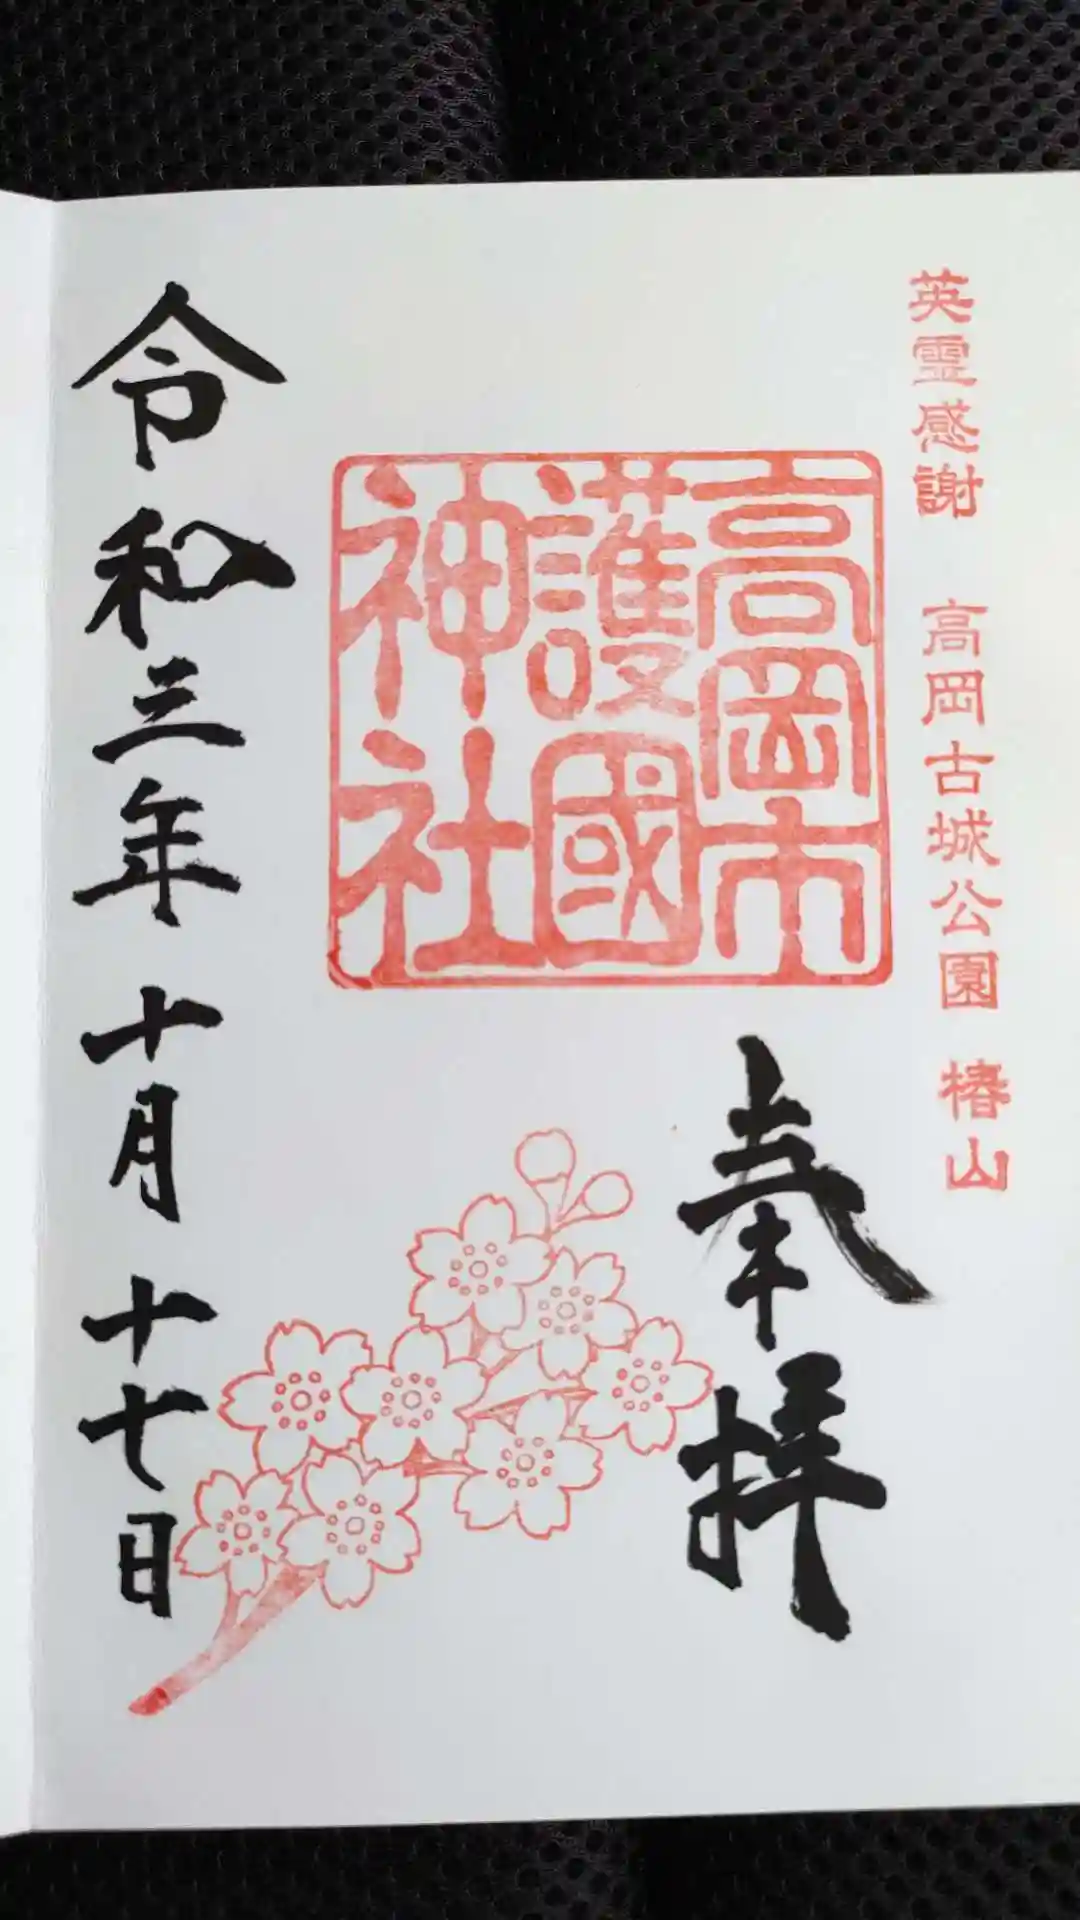 英霊感謝 高岡古城公園 椿山
奉拝
高岡市
護國
神社
令和三年 十月 十七日